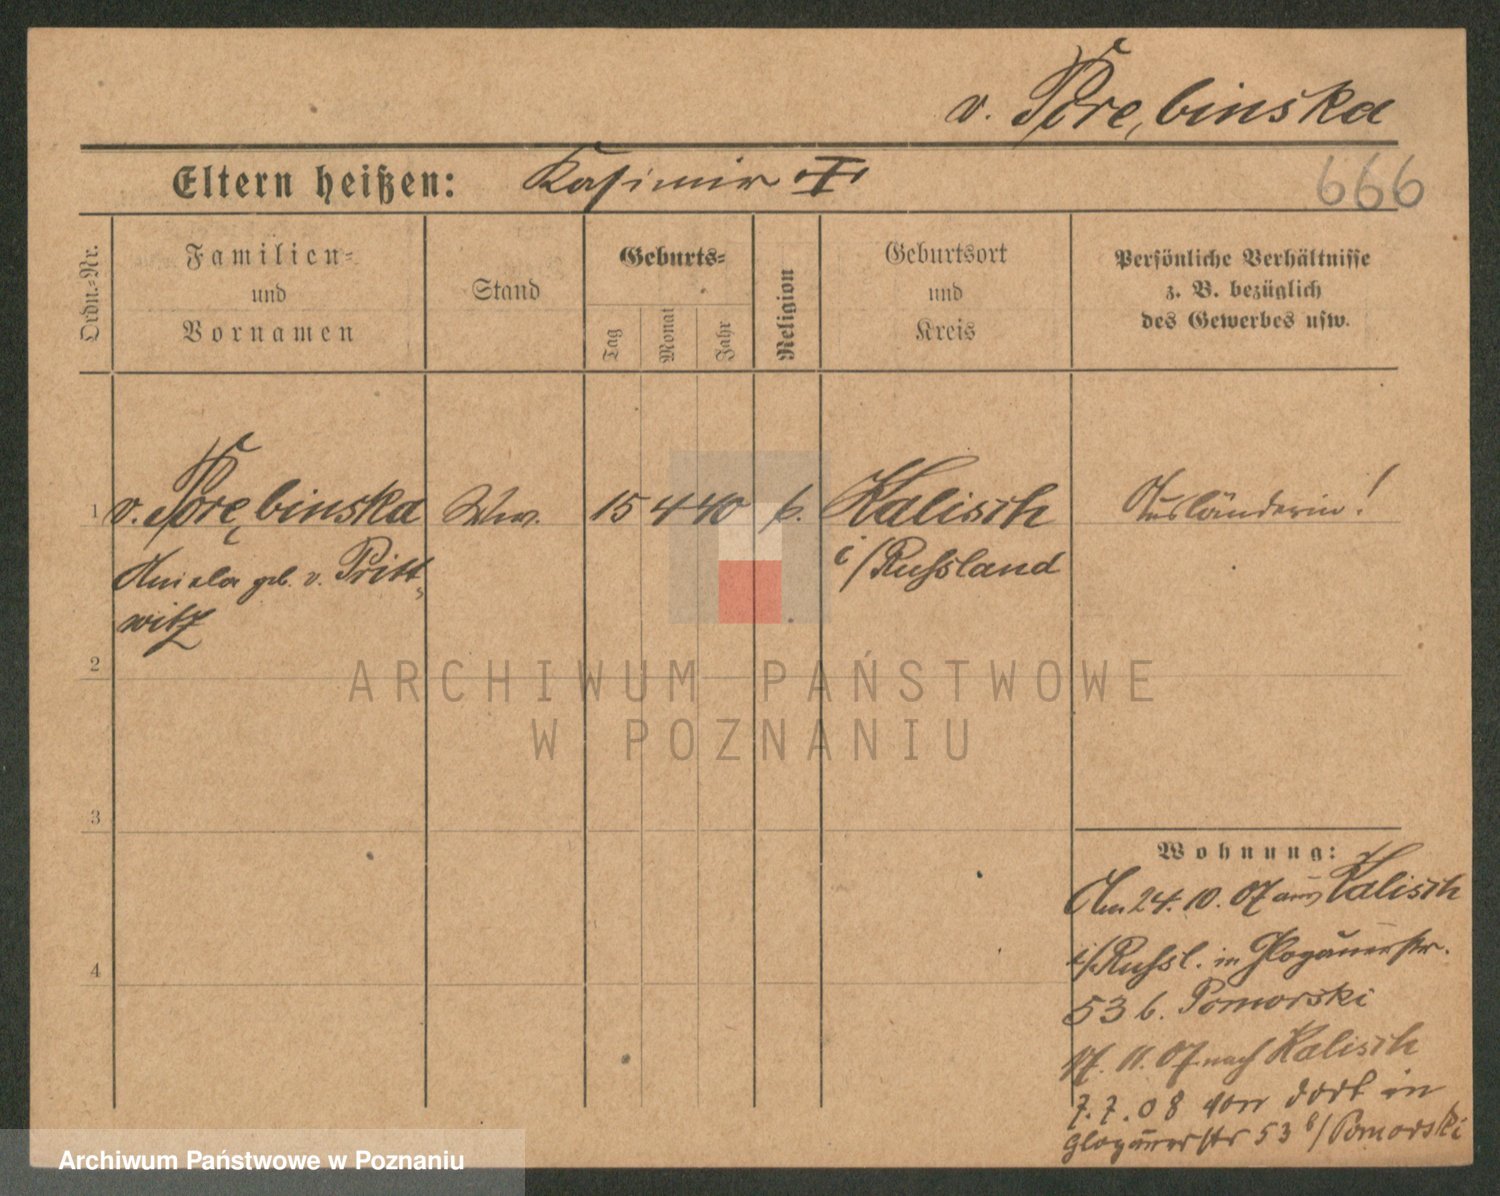 v. Porębinska
Eltern heißen: Kasimir †
666
Ordn.-Nr.
Familien-
und
Vornamen
Stand
Geburts-
Tag
Monat
Jahr
Religion
Geburtsort
und
Kreis
Persönliche Verhältnisse
z. B. bezüglich
des Gewerbes usw.
1 v. Porębinska Ww. 15 4 40 k. Kalisch Ausländerin!
Aniela geb. v. Pritt- i/Russland
witz
2
ARCHIWUM PAŃSTWOWE
W POZNANIU
3
Wohnung:
Am 24. 10. 07 aus Kalisch
i/Russl. in Glogauerstr.
4
53 b. Pomorski
17. 11. 07 nach Kalisch
7. 7. 08 von dort in
Glogauerstr 53 b/Pomorski
Archiwum Państwowe w Poznaniu